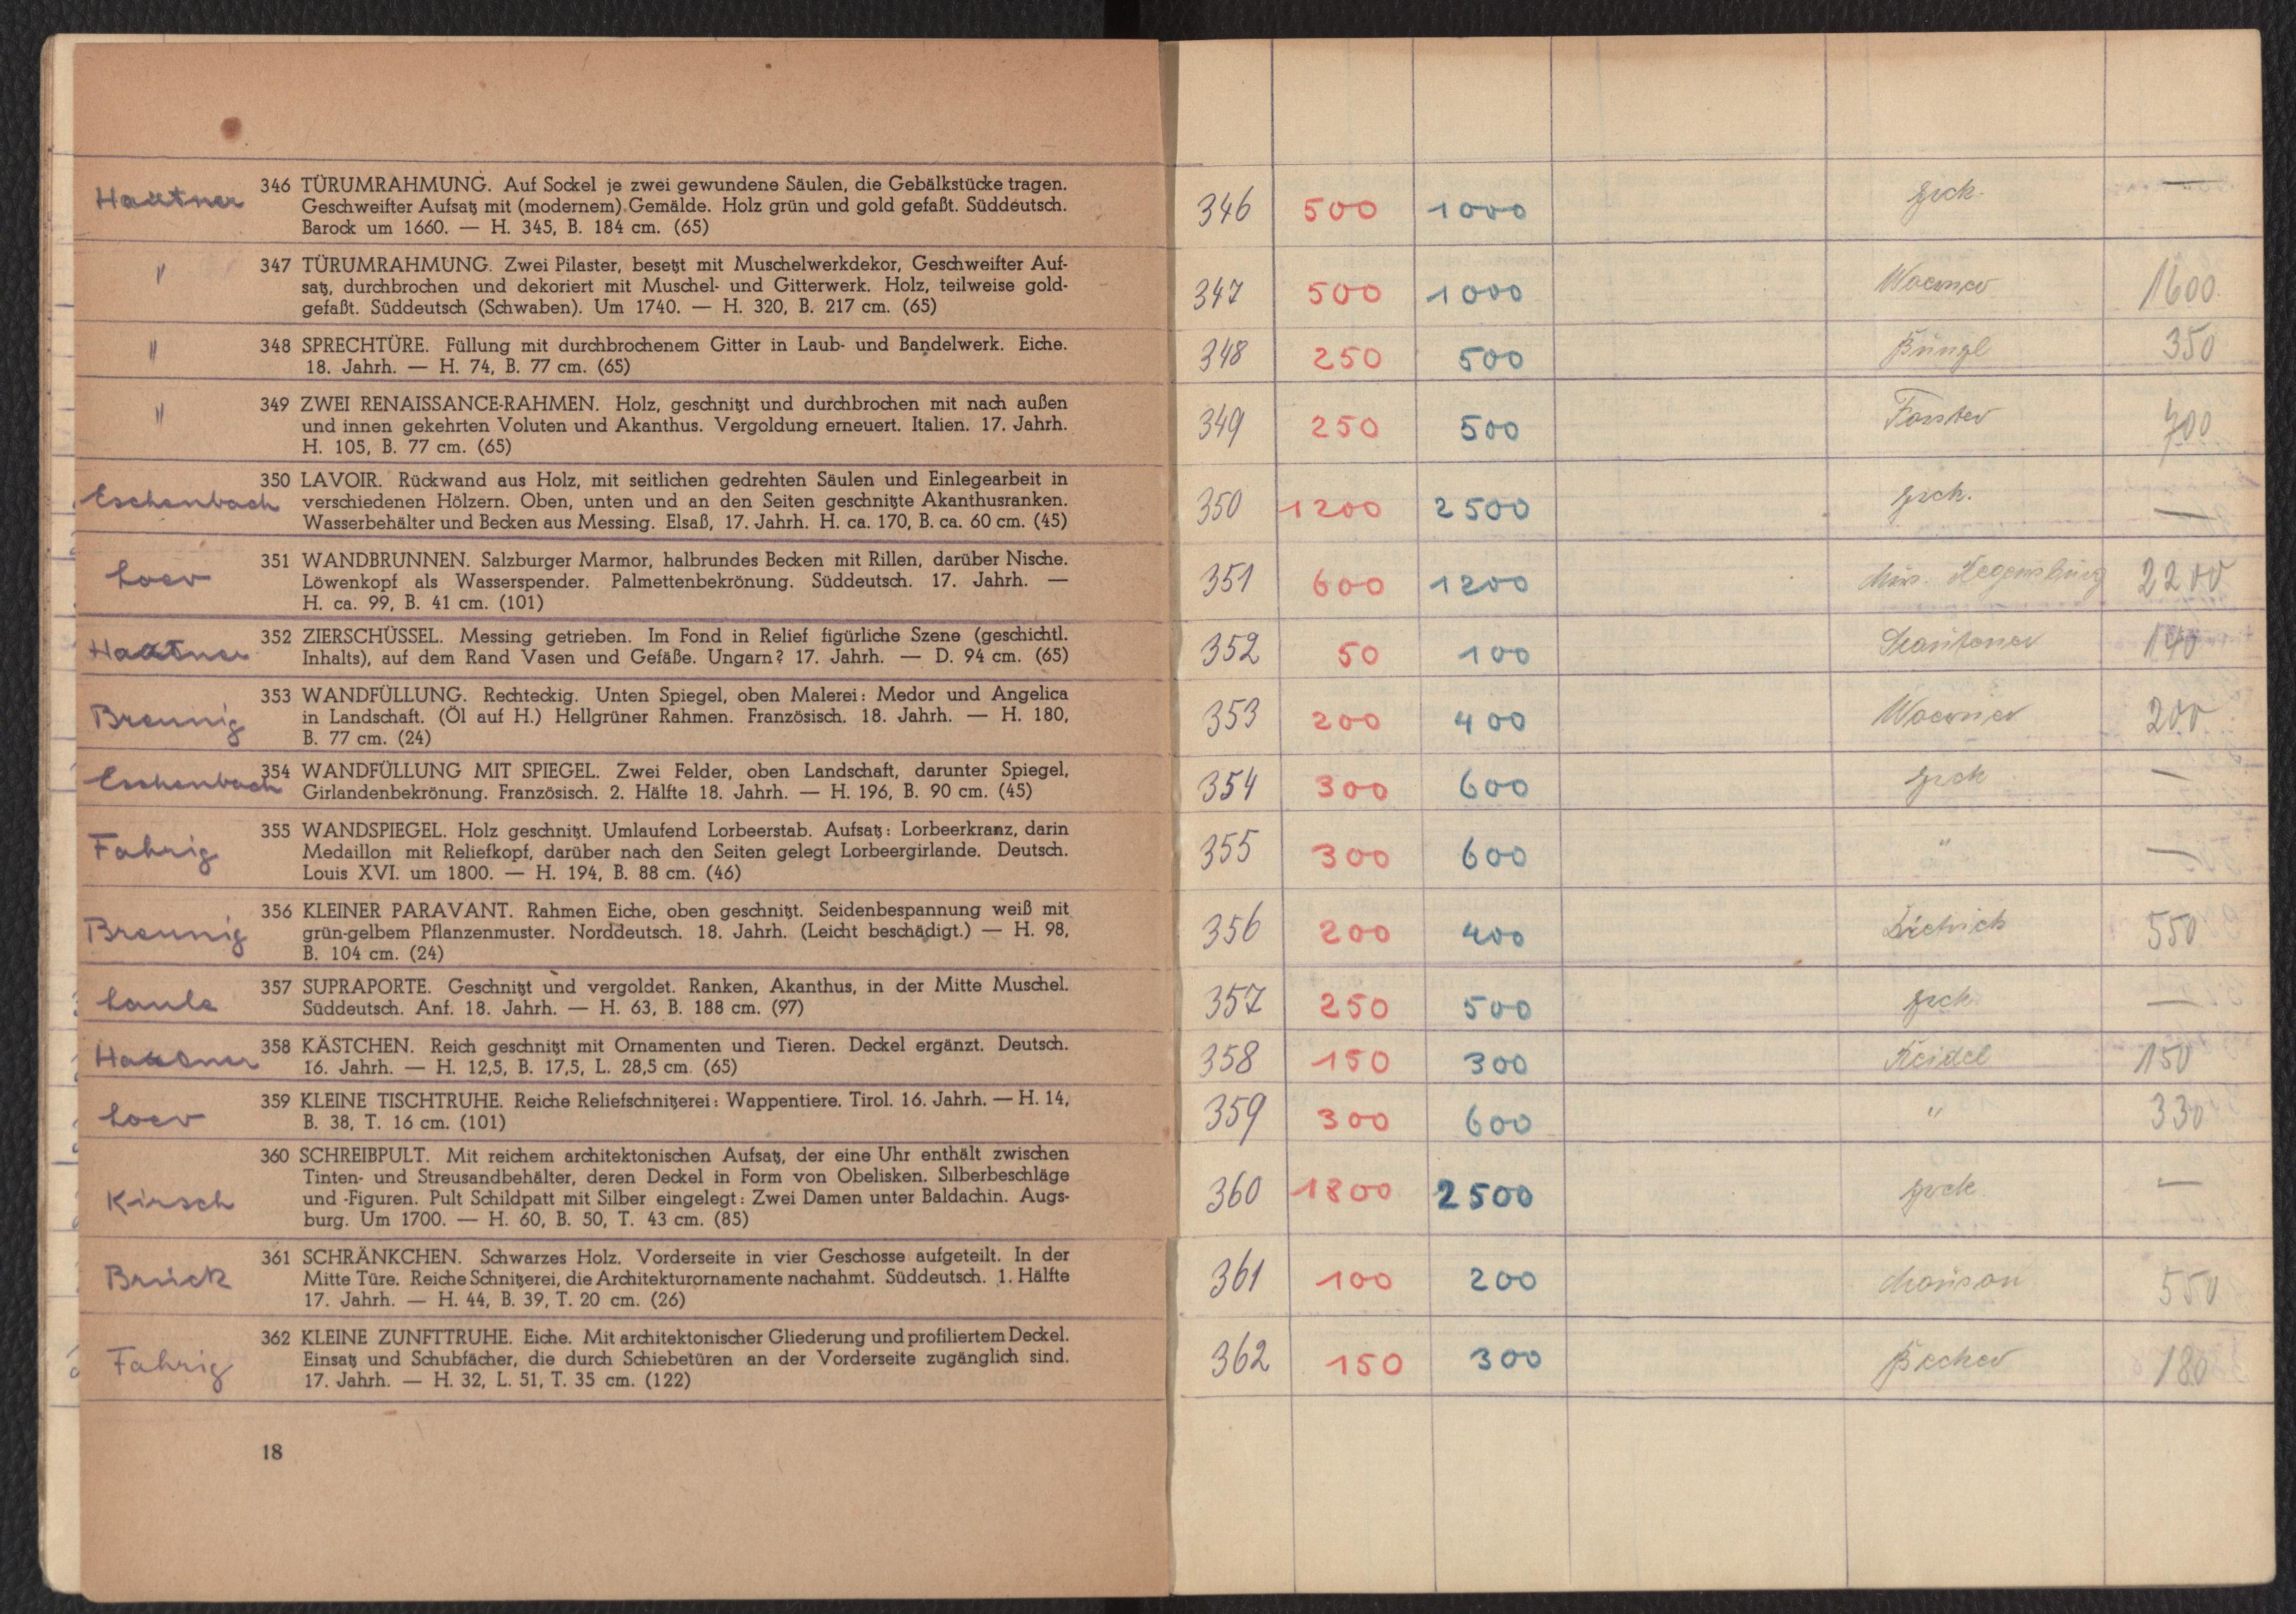 Hartner
346 TÜRUMRAHMUNG. Auf Sockel je zwei gewundene Säulen, die Gebälkstücke tragen.
Geschweifter Aufsatz mit (modernem) Gemälde. Holz grün und gold gefaßt. Süddeutsch.
Barock um 1660. — H. 345, B. 184 cm. (65)
" 347 TÜRUMRAHMUNG. Zwei Pilaster, besetzt mit Muschelwerkdekor, Geschweifter Auf-
satz, durchbrochen und dekoriert mit Muschel- und Gitterwerk. Holz, teilweise gold-
gefaßt. Süddeutsch (Schwaben). Um 1740. — H. 320, B. 217 cm. (65)
" 348 SPRECHTÜRE. Füllung mit durchbrochenem Gitter in Laub- und Bandelwerk. Eiche.
18. Jahrh. — H. 74, B. 77 cm. (65)
" 349 ZWEI RENAISSANCE-RAHMEN. Holz, geschnitzt und durchbrochen mit nach außen
und innen gekehrten Voluten und Akanthus. Vergoldung erneuert. Italien. 17. Jahrh.
H. 105, B. 77 cm. (65)
Eschenbach
350 LAVOIR. Rückwand aus Holz, mit seitlichen gedrehten Säulen und Einlegearbeit in
verschiedenen Hölzern. Oben, unten und an den Seiten geschnitzte Akanthusranken.
Wasserbehälter und Becken aus Messing. Elsaß, 17. Jahrh. H. ca. 170, B. ca. 60 cm. (45)
Loev
351 WANDBRUNNEN. Salzburger Marmor, halbrundes Becken mit Rillen, darüber Nische.
Löwenkopf als Wasserspender. Palmettenbekrönung. Süddeutsch. 17. Jahrh. —
H. ca. 99, B. 41 cm. (101)
Hartner
352 ZIERSCHÜSSEL. Messing getrieben. Im Fond in Relief figürliche Szene (geschichtl.
Inhalts), auf dem Rand Vasen und Gefäße. Ungarn? 17. Jahrh. — D. 94 cm. (65)
Breunig
353 WANDFÜLLUNG. Rechteckig. Unten Spiegel, oben Malerei: Medor und Angelica
in Landschaft. (Öl auf H.) Hellgrüner Rahmen. Französisch. 18. Jahrh. — H. 180,
B. 77 cm. (24)
Eschenbach
354 WANDFÜLLUNG MIT SPIEGEL. Zwei Felder, oben Landschaft, darunter Spiegel,
Girlandenbekrönung. Französisch. 2. Hälfte 18. Jahrh. — H. 196, B. 90 cm. (45)
Fahrig
355 WANDSPIEGEL. Holz geschnitzt. Umlaufend Lorbeerstab. Aufsatz: Lorbeerkranz, darin
Medaillon mit Reliefkopf, darüber nach den Seiten gelegt Lorbeergirlande. Deutsch.
Louis XVI. um 1800. — H. 194, B. 88 cm. (46)
Breunig
356 KLEINER PARAVANT. Rahmen Eiche, oben geschnitzt. Seidenbespannung weiß mit
grün-gelbem Pflanzenmuster. Norddeutsch. 18. Jahrh. (Leicht beschädigt.) — H. 98,
B. 104 cm. (24)
Laule
357 SUPRAPORTE. Geschnitzt und vergoldet. Ranken, Akanthus, in der Mitte Muschel.
Süddeutsch. Anf. 18. Jahrh. — H. 63, B. 188 cm. (97)
Hartner
358 KÄSTCHEN. Reich geschnitzt mit Ornamenten und Tieren. Deckel ergänzt. Deutsch.
16. Jahrh. — H. 12,5, B. 17,5, L. 28,5 cm. (65)
Loev
359 KLEINE TISCHTRUHE. Reiche Reliefschnitzerei: Wappentiere. Tirol. 16. Jahrh. — H. 14,
B. 38, T. 16 cm. (101)
Kirsch
360 SCHREIBPULT. Mit reichem architektonischen Aufsatz, der eine Uhr enthält zwischen
Tinten- und Streusandbehälter, deren Deckel in Form von Obelisken. Silberbeschläge
und -Figuren. Pult Schildpatt mit Silber eingelegt: Zwei Damen unter Baldachin. Augs-
burg. Um 1700. — H. 60, B. 50, T. 43 cm. (85)
Brück
361 SCHRÄNKCHEN. Schwarzes Holz. Vorderseite in vier Geschosse aufgeteilt. In der
Mitte Türe. Reiche Schnitzerei, die Architekturornamente nachahmt. Süddeutsch. 1. Hälfte
17. Jahrh. — H. 44, B. 39, T. 20 cm. (26)
Fahrig
362 KLEINE ZUNFTTRUHE. Eiche. Mit architektonischer Gliederung und profiliertem Deckel.
Einsatz und Schubfächer, die durch Schiebetüren an der Vorderseite zugänglich sind.
17. Jahrh. — H. 32, L. 51, T. 35 cm. (122)
18
346 500 1000 zrck. —
347 500 1000 Woerner 1600
348 250 500 Büngl 350
349 250 500 Forster 700
350 1200 2500 zrck. —
351 600 1200 Mus. Regensburg 2200
352 50 100 140
353 200 400 Woerner 200
354 300 600 zrck —
355 300 600 " —
356 200 400 550
357 250 500 zrck —
358 150 300 Reidel 150
359 300 600 " 330
360 1800 2500 zrck —
361 100 200 550
362 150 300 Becher 180